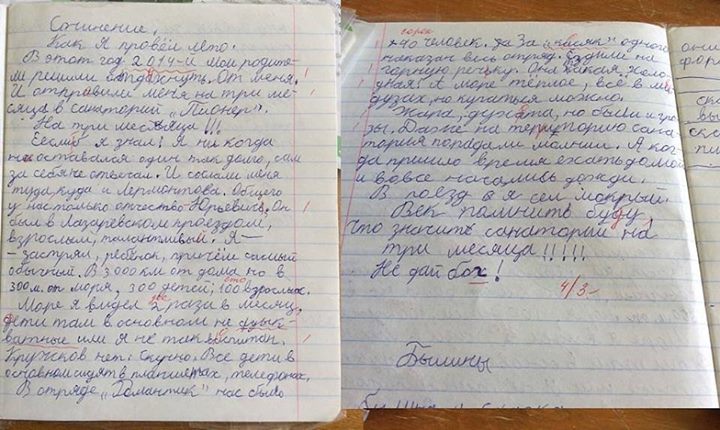 Сочинение.
Как Я провёл лето.
В этот год 2014-и мои родите-
ли решили отдохнуть. От меня.
И отправили меня на три ме-
сяца в санаторий „Пионер".
На три месяца!!!
Еслиб я знал! Я ни когда
не оставался один так долго, сам
за себя не отвечал. И сослали меня
туда куда и Лермонтова. Общего
у нас только отчество Юрьевич. Он
был в Лазаревском проездом,
взрослым, талантливый. Я-
- застрял, ребёнок, причём самый
обычный. В 3000 км от дома но в
300 м. от моря, 300 детей, сто 100 взрослых.
Море я видел две 2 рази в месяц,
дети там в основном не адык-
ватные или я не так воспитан.
Кружков нет. Скучно. Все дети в
основном сидят в планшетах, телефонах.
В отряде „Романтик" нас было
сорок
40 человек. Да За „касяк" одного
наказан весь отряд. Ездили на
горную речку. Она какая холо-
дная! А море тёплое, всё в ме-
дузах, но купаться можно.
Жара, духота, но были и гро-
зы. Даже на территорию сана-
тория попадали молнии. А ког-
да пришло время ехать домой
и вовсе начались дожди.
В поезд а я сел мокрый.
Век помнить буду
Что значить санаторий на
три месяца!!!!!
Не дай бох!
4/3-
Былины